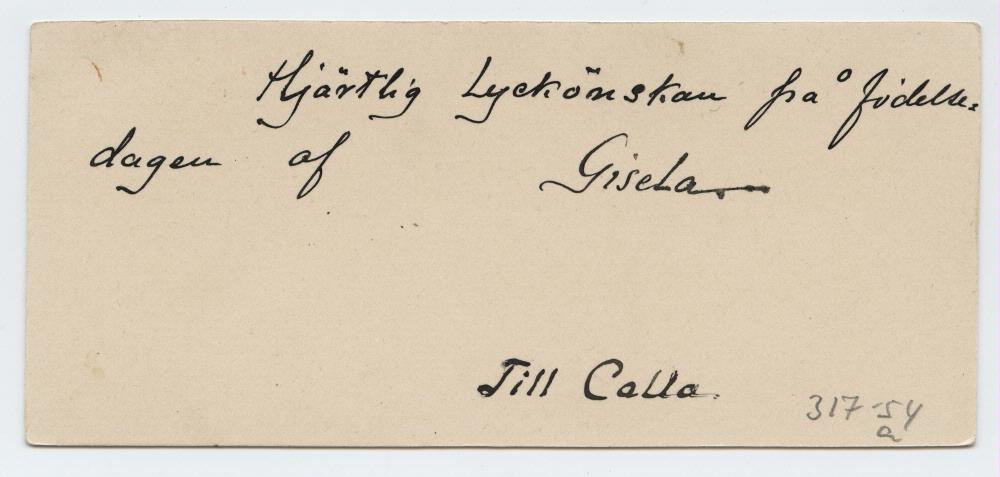 Hjärtlig Lyckönskan på födelse=
dagen af Gisela.
Till Calla.
317-54
a